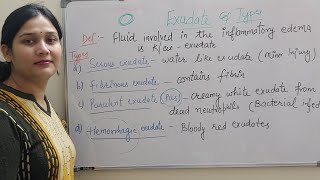 Exudate & Types
Def:- Fluid involved in the inflammatory edema
is k/as - exudate
Types
a) Serous exudate - water like exudate (minor injury)
b) Fibrinous exudate - contains fibrin
c) Purulent exudate (Pus) - creamy white exudate from
dead neutrophils (Bacterial infec
d) Hemorrhagic exudate - Bloody red exudates